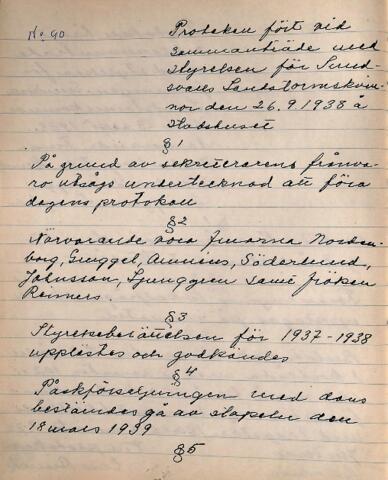 No 40
Protokoll fört vid
sammanträde med
styrelsen för Sund-
svalls Landstormskvin-
nor den 26.9.1938 å
stadshuset
§ 1
På grund av sekreterarens frånva-
ro utsågs undertecknad att föra
dagens protokoll
§2
Närvarande voro fruarna Norden-
borg, Söderlund,
Johnsson, Ljunggren samt fröken
Reimers.
§3
Styrelseberättelsen för 1937-1938
upplästes och godkändes
§4
Påskförsäljningen med dans
bestämdes gå av stapeln den
18 mars 1939
§5